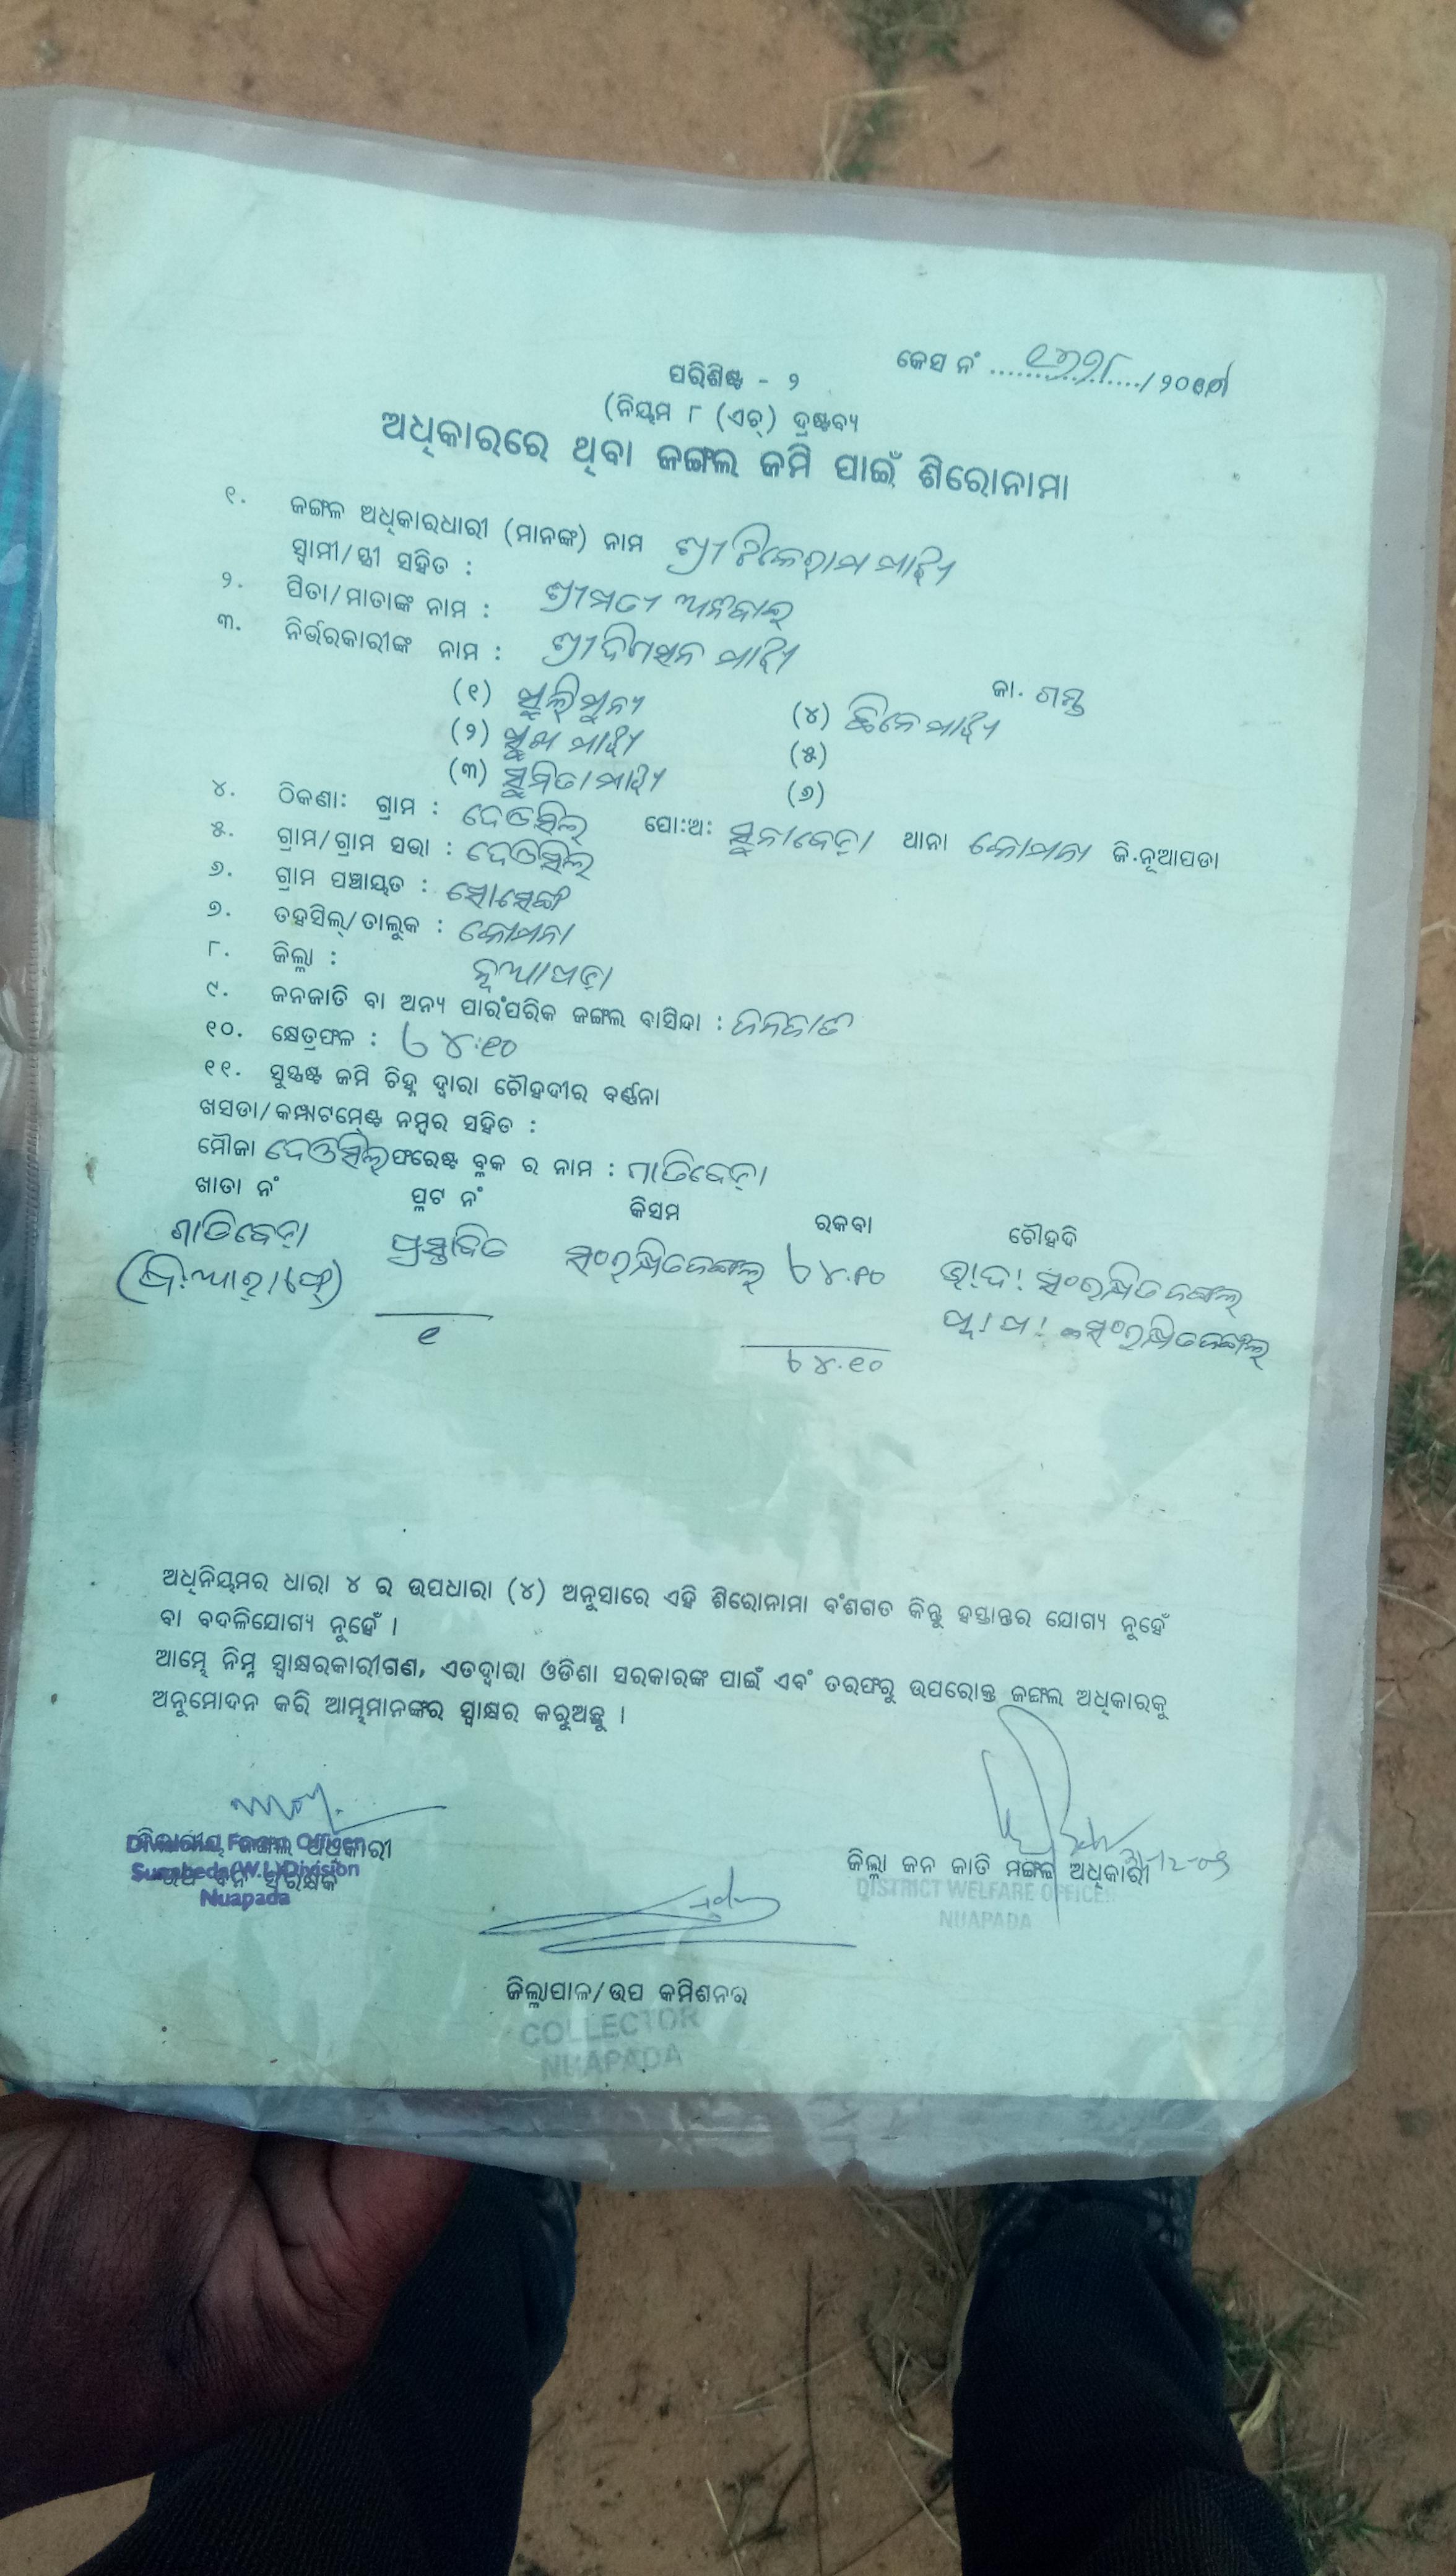 କେସ ନଂ ................/ ୨୦୦୯
ପରିଶିଷ୍ଟ - ୨
(ନିୟମ ୮ (ଏଚ୍) ଦ୍ରଷ୍ଟବ୍ୟ
ଅଧିକାରରେ ଥିବା ଜଙ୍ଗଲ ଜମି ପାଇଁ ଶିରୋନାମା
୧. ଜଙ୍ଗଲ ଅଧିକାରଧାରୀ (ମାନଙ୍କ) ନାମ ଶ୍ରୀ ଟିକେରାମ ମାଝି
ସ୍ୱାମୀ/ସ୍ତ୍ରୀ ସହିତ : ଶ୍ରୀମତୀ
୨. ପିତା/ମାତାଙ୍କ ନାମ : ଶ୍ରୀ ମାଝି
୩. ନିର୍ଭରକାରୀଙ୍କ ନାମ : ଜା. ଗଣ୍ଡ
(୧) (୪) ମାଝି
(୨) ମାଝି (୫)
(୩) ସୁମିତା ମାଝି (୬)
୪. ଠିକଣା: ଗ୍ରାମ : ଦେଓସିଲ୍ ପୋ:ଅ: ସୁନାବେଡ଼ା ଥାନା କୋମନା ଜି.ନୂଆପଡା
୫. ଗ୍ରାମ/ଗ୍ରାମ ସଭା : ଦେଓସିଲ୍
୬. ଗ୍ରାମ ପଞ୍ଚାୟତ :
୭. ତହସିଲ୍/ତାଲୁକ : କୋମନା
୮. ଜିଲ୍ଲା : ନୂଆପଡ଼ା
୯. ଜନଜାତି ବା ଅନ୍ୟ ପାରଂପରିକ ଜଙ୍ଗଲ ବାସିନ୍ଦା : ଜନଜାତି
୧୦. କ୍ଷେତ୍ରଫଳ : ୪.୧୦
୧୧. ସୁସ୍ପଷ୍ଟ ଜମି ଚିହ୍ନ ଦ୍ୱାରା ଚୌହଦୀର ବର୍ଣ୍ଣନା
ଖସଡା/କମ୍ପାଟମେଣ୍ଟ ନମ୍ବର ସହିତ :
ମୌଜା ଦେଓସିଲ୍ ଫରେଷ୍ଟ ବ୍ଲକ ର ନାମ : ପାତିବେଡ଼ା
ଖାତା ନଂ ପ୍ଲଟ ନଂ କିସମ ରକବା ଚୌହଦି
ପାତିବେଡ଼ା ପ୍ରସ୍ତାବିତ ସଂରକ୍ଷିତ ଜଙ୍ଗଲ ୪.୧୦ ଉ!ଦ! ସଂରକ୍ଷିତ ଜଙ୍ଗଲ
ପୂ!ପ! ସଂରକ୍ଷିତ ଜଙ୍ଗଲ
୧ ୪.୧୦
ଅଧିନିୟମର ଧାରା ୪ ର ଉପଧାରା (୪) ଅନୁସାରେ ଏହି ଶିରୋନାମା ବଂଶଗତ କିନ୍ତୁ ହସ୍ତାନ୍ତର ଯୋଗ୍ୟ ନୁହେଁ
ବା ବଦଳିଯୋଗ୍ୟ ନୁହେଁ ।
ଆମ୍ଭେ ନିମ୍ନ ସ୍ୱାକ୍ଷରକାରୀଗଣ, ଏତଦ୍ୱାରା ଓଡିଶା ସରକାରଙ୍କ ପାଇଁ ଏବଂ ତରଫରୁ ଉପରୋକ୍ତ ଜଙ୍ଗଲ ଅଧିକାରକୁ
ଅନୁମୋଦନ କରି ଆମ୍ଭମାନଙ୍କର ସ୍ୱାକ୍ଷର କରୁଅଛୁ ।
ବିଭାଗୀୟ ଜଙ୍ଗଲ ଅଧିକାରୀ
Divisional Forest Officer
Sunabeda(W.L)Division
Nuapada
ଜିଲ୍ଲା ଜନ ଜାତି ମଙ୍ଗଳ ଅଧିକାରୀ
DISTRICT WELFARE OFFICER
NUAPADA
ଜିଲ୍ଲାପାଳ/ଉପ କମିଶନର
COLLECTOR
NUAPADA